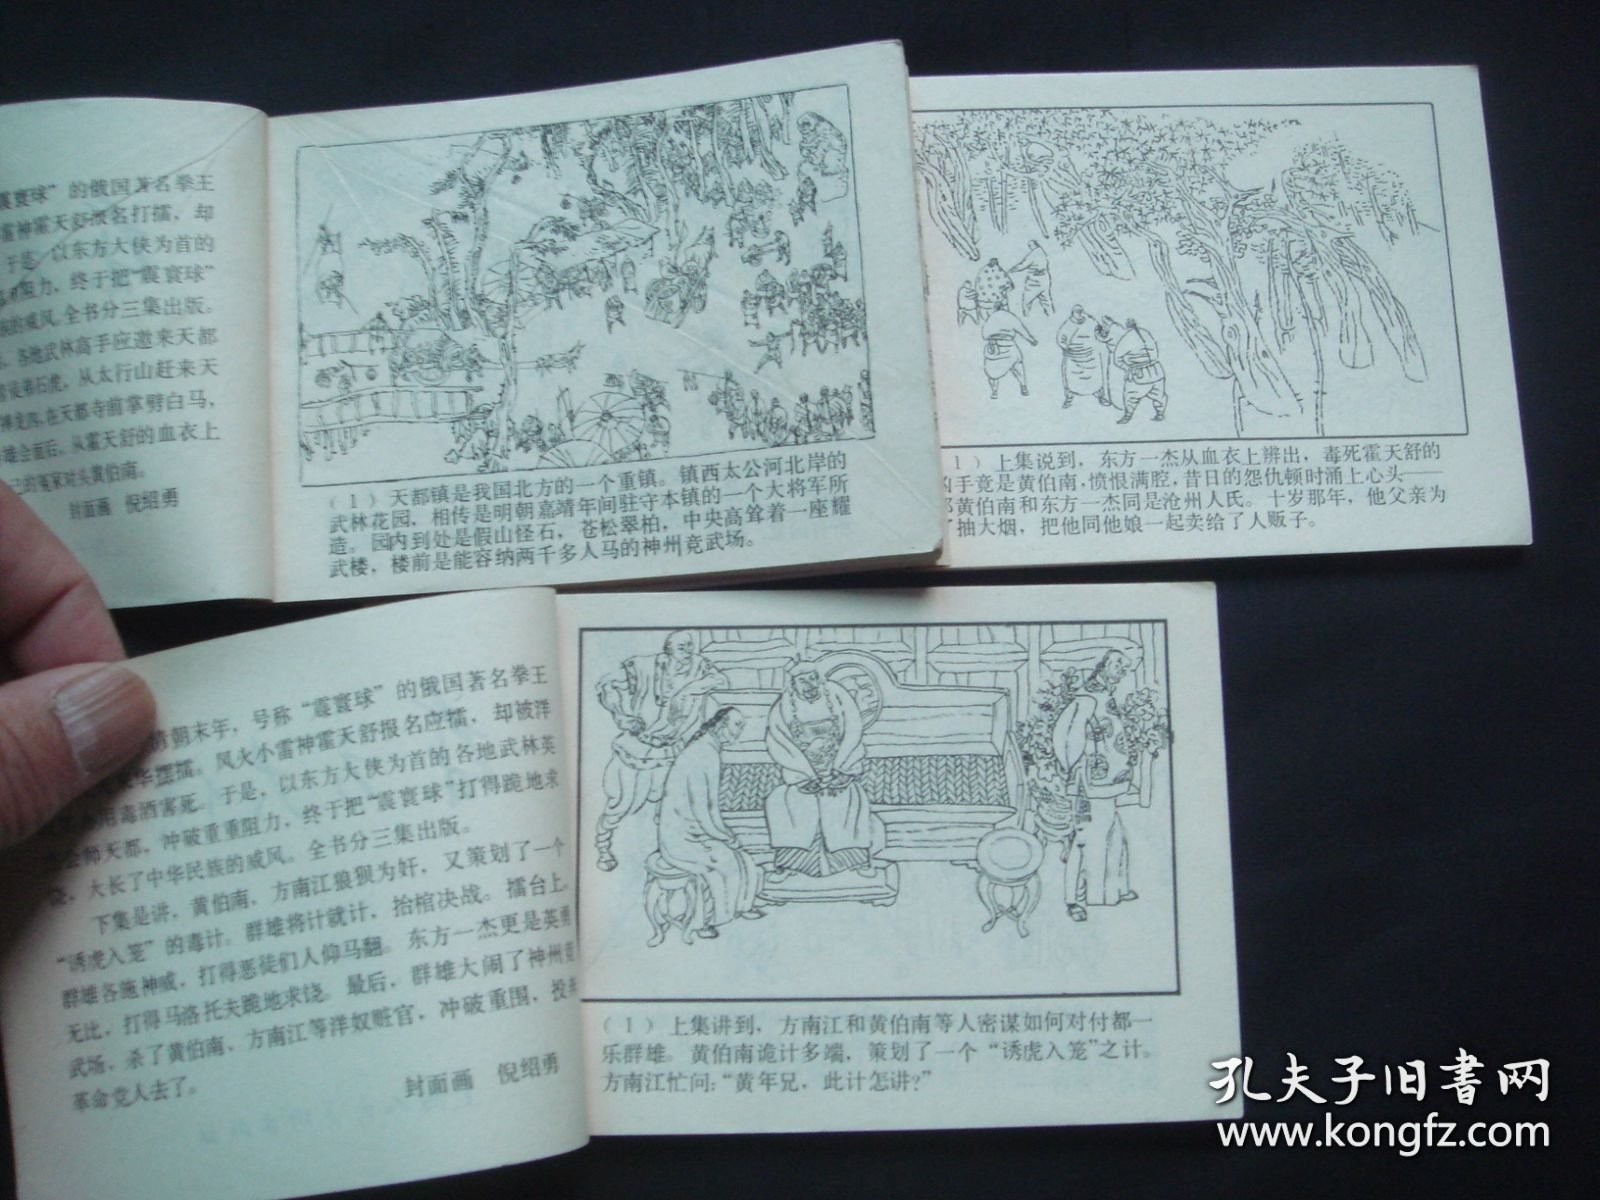 震寰球”的俄国著名拳王
雷神霍天舒报名打擂，却
于是，以东方大侠为首的
重阻力，终于把“震寰球”
族的威风。全书分三集出版。
各地武林高手应邀来天都
徒弟石虎，从太行山赶来天
在天都寺前掌劈白马，
雄会面后，从霍天舒的血衣上
己的冤家对头黄伯南。
封面画 倪绍勇
（1）天都镇是我国北方的一个重镇。镇西太公河北岸的
武林花园，相传是明朝嘉靖年间驻守本镇的一个大将军所
造。园内到处是假山怪石，苍松翠柏，中央高耸着一座耀
武楼，楼前是能容纳两千多人马的神州竞武场。
1）上集说到，东方一杰从血衣上辨出，毒死霍天舒的
凶手竟是黄伯南，愤恨满腔，昔日的怨仇顿时涌上心头——
那黄伯南和东方一杰同是沧州人氏。十岁那年，他父亲为
了抽大烟，把他同他娘一起卖给了人贩子。
清朝末年，号称“震寰球”的俄国著名拳王
华摆擂。风火小雷神霍天舒报名应擂，却被洋
用毒酒害死。于是，以东方大侠为首的各地武林英
会师天都，冲破重重阻力，终于把“震寰球”打得跪地求
饶，大长了中华民族的威风。全书分三集出版。
下集是讲，黄伯南、方南江狼狈为奸，又策划了一个
“诱虎入笼”的毒计。群雄将计就计，抬棺决战。擂台上，
群雄各施神威，打得恶徒们人仰马翻。东方一杰更是英勇
无比，打得马洛托夫跪地求饶。最后，群雄大闹了神州竞
武场，杀了黄伯南、方南江等洋奴赃官，冲破重围，投奔
革命党人去了。
封面画 倪绍勇
（1）上集讲到，方南江和黄伯南等人密谋如何对付都一
乐群雄。黄伯南诡计多端，策划了一个“诱虎入笼”之计。
方南江忙问：“黄年兄，此计怎讲？”
孔夫子旧書网
www.kongfz.com